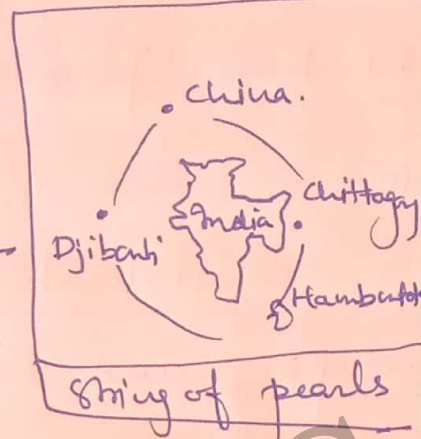 China.
Chittagong
India
Djibouti
Hambantota
String of pearls